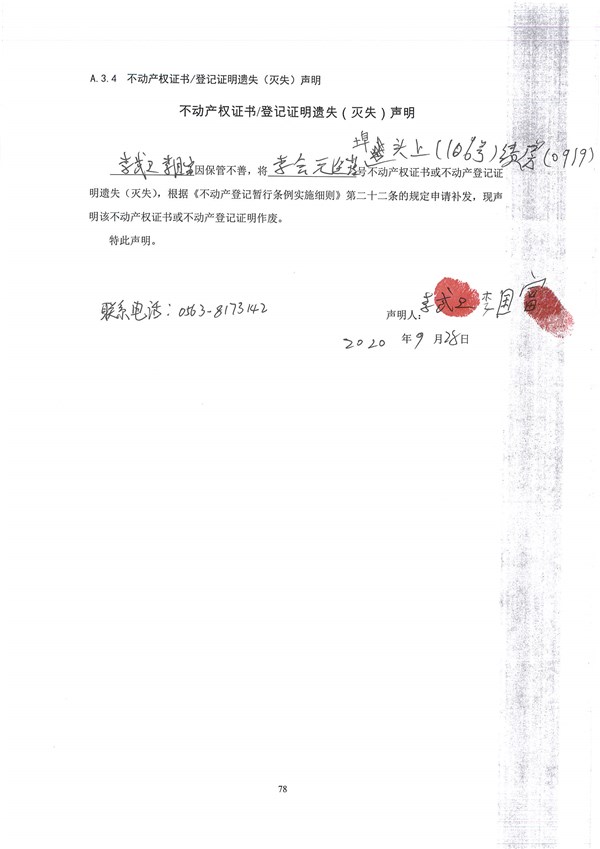 A.3.4 不动产权证书/登记证明遗失（灭失）声明
不动产权证书/登记证明遗失（灭失）声明
埠头上(106号)绩房(0919)
李武卫 李国富因保管不善，将 李会元 号不动产权证书或不动产登记证
明遗失（灭失），根据《不动产登记暂行条例实施细则》第二十二条的规定申请补发，现声
明该不动产权证书或不动产登记证明作废。
特此声明。
联系电话：0563-8173142
声明人：李武卫 李国富
2020 年 9 月 28 日
78